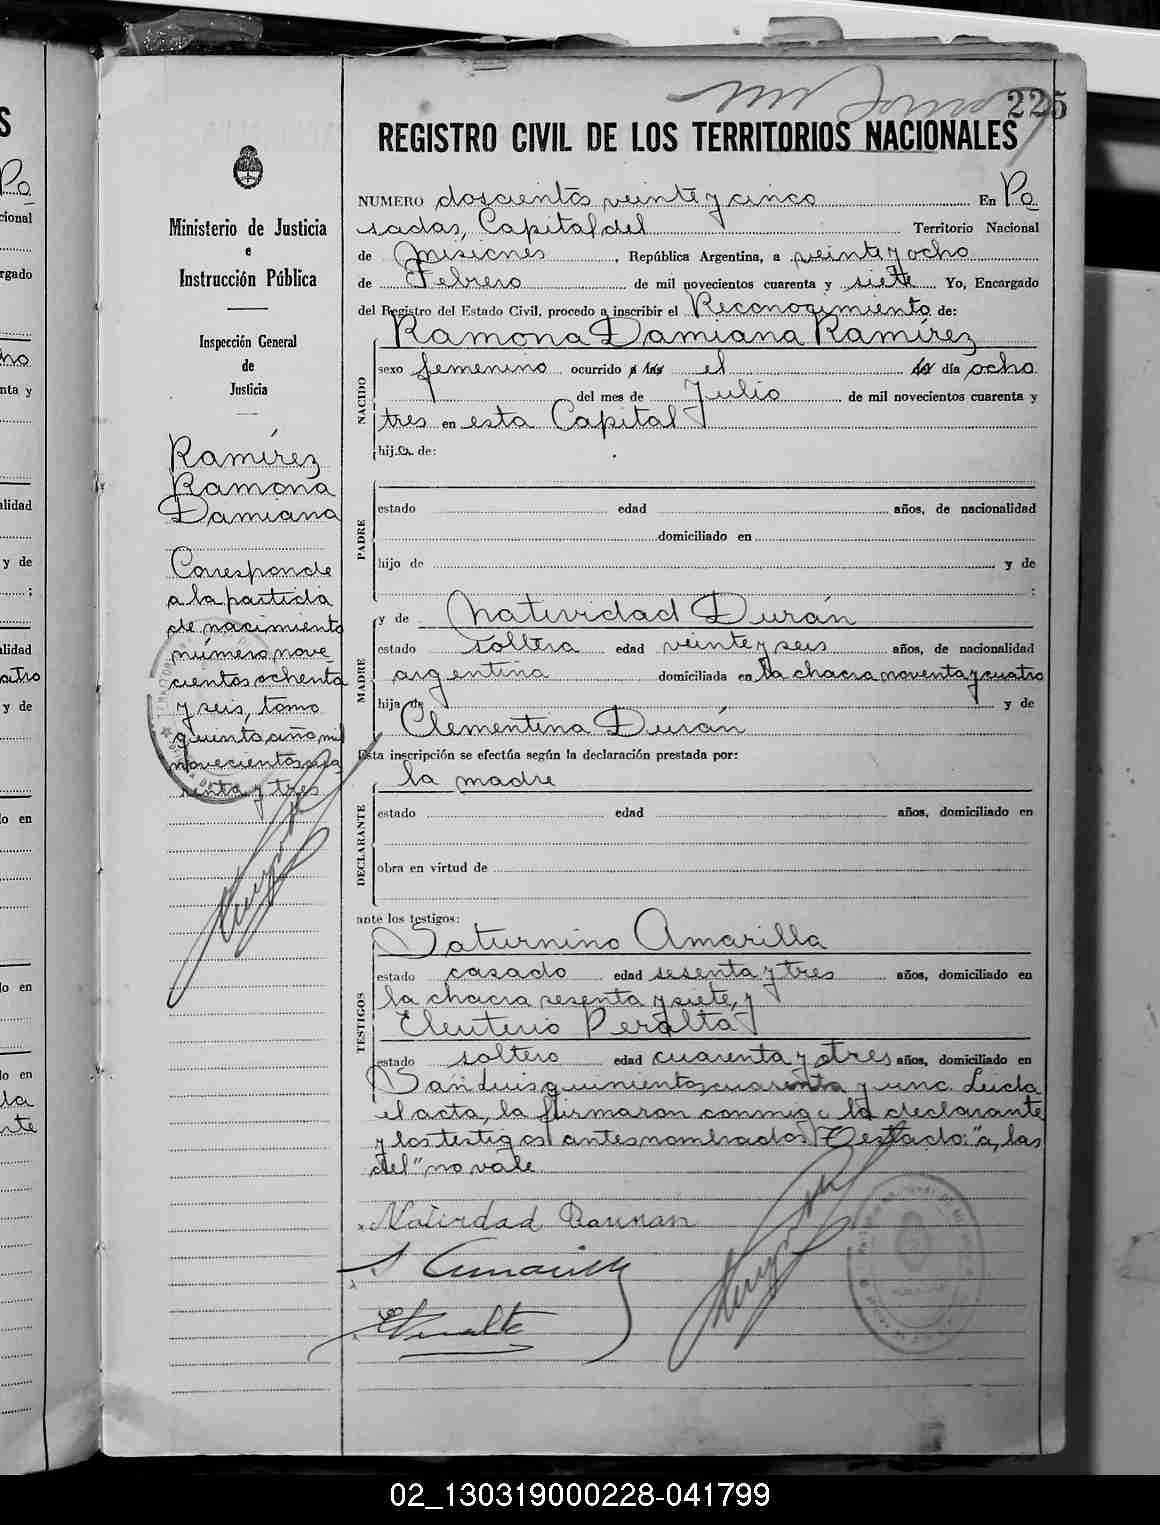 225
REGISTRO CIVIL DE LOS TERRITORIOS NACIONALES
Ministerio de Justicia
e
Instrucción Pública
Inspección General
de
Justicia
Ramírez
Ramona
Damiana
Corresponde
a la partida
de nacimiento
número nove-
cientos ochenta
y seis, tomo
quinto, año mil
novecientos cua
renta y tres
NUMERO doscientos veinte y cinco En Po
sadas, Capital del Territorio Nacional
de Misiones, República Argentina, a veinte y ocho
de Febrero de mil novecientos cuarenta y siete Yo, Encargado
del Registro del Estado Civil, procedo a inscribir el Reconocimiento de:
Ramona Damiana Ramírez
NACIDO
sexo femenino ocurrido a las el día ocho
del mes de Julio de mil novecientos cuarenta y
tres en esta Capital
hija de:
PADRE
estado edad años, de nacionalidad
domiciliado en
hijo de y de
:
MADRE
y de Natividad Durán
estado soltera edad veinte y seis años, de nacionalidad
argentina domiciliada en la chacra noventa y cuatro
hija de y de
Clementina Durán
Esta inscripción se efectúa según la declaración prestada por:
la madre
DECLARANTE
estado edad años, domiciliado en
obra en virtud de
ante los testigos:
Saturnino Amarilla
TESTIGOS
estado casado edad sesenta y tres años, domiciliado en
la chacra sesenta y siete, y
Eleuterio Peralta
estado soltero edad cuarenta y tres años, domiciliado en
San Luis quinientos cuarenta y uno. Leida
el acta, la firmaron conmigo la declarante
y los testigos antes nombrados Testado: "a, las
del" no vale
Natirdad Dauran
S Amarilla
EPeralta
02_130319000228-041799